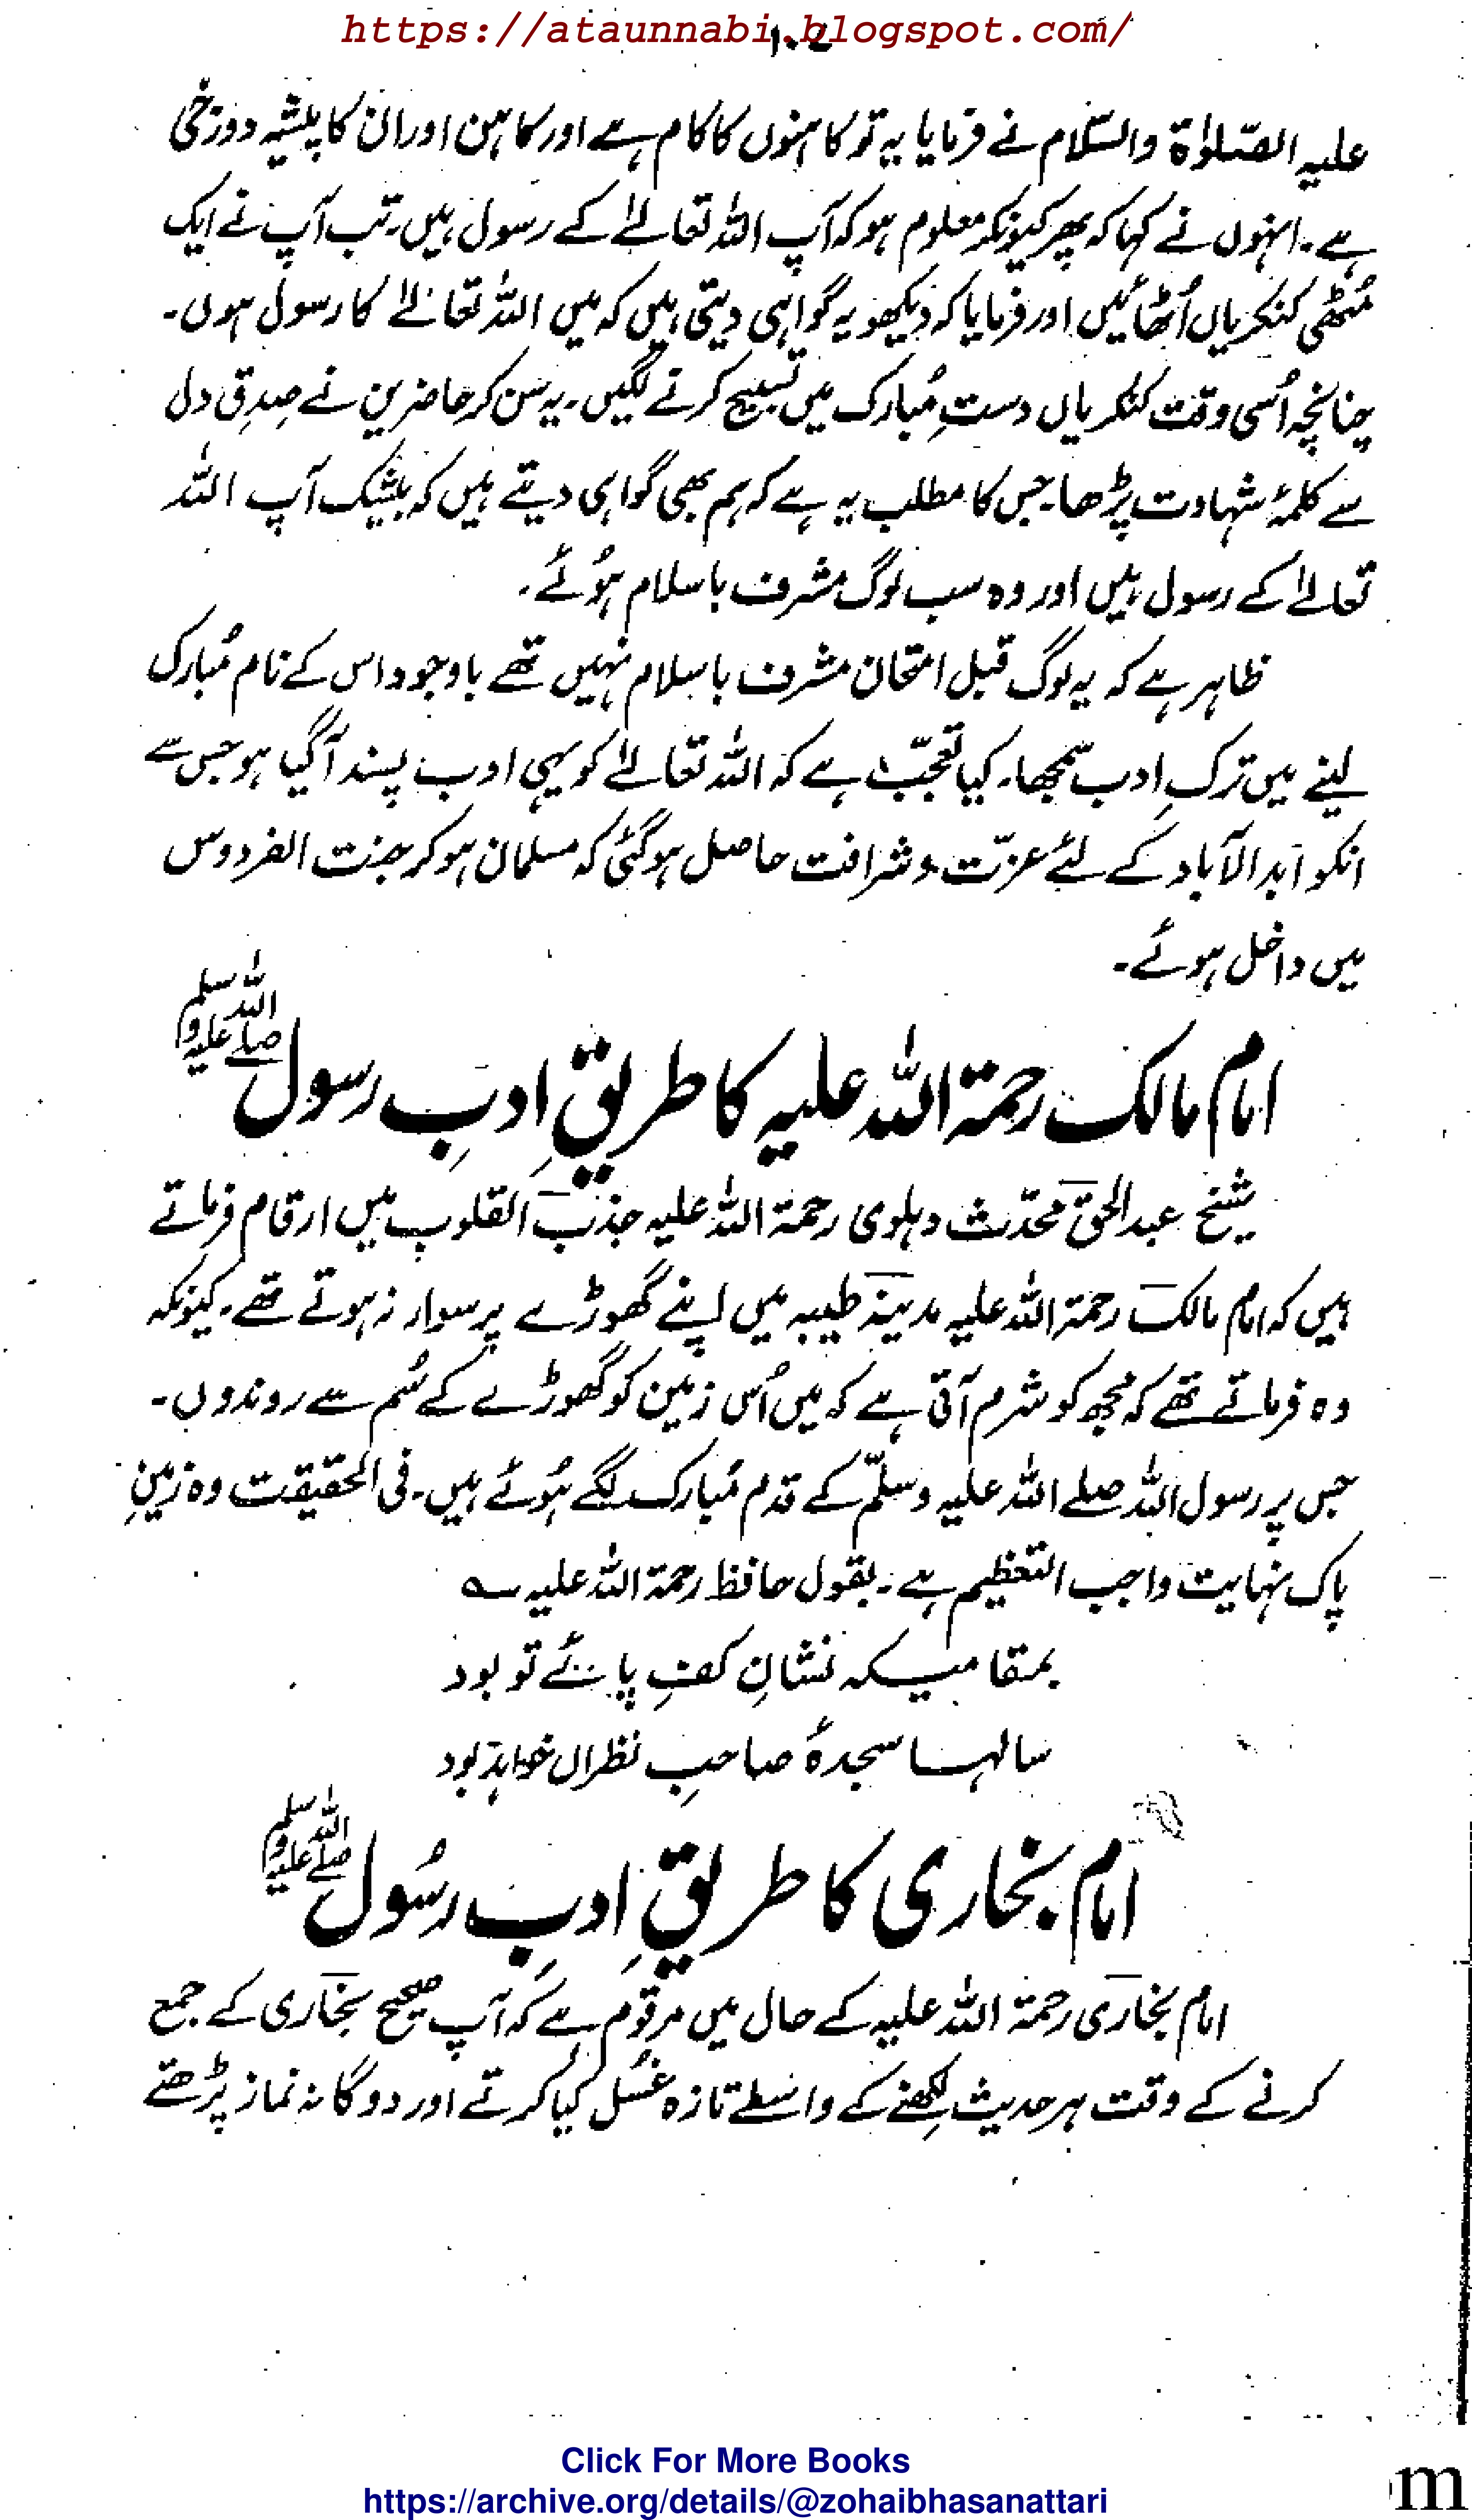 https://ataunnabi.blogspot.com/
۱۰۷
علیہ الصّلوٰۃ والسّلام نے فرمایا یہ تو کاہنوں کا کام ہے اور کاہن اور ان کا پیشہ دوزخی
ہے۔ انہوں نے کہا کہ پھر کیونکر معلوم ہو کہ آپ اللہ تعالےٰ کے رسول ہیں۔ تب آپ نے ایک
مُٹھی کنکریاں اُٹھائیں اور فرمایا کہ دیکھو یہ گواہی دیتی ہیں کہ میں اللہ تعالےٰ کا رسول ہوں۔
چنانچہ اُسی وقت کنکریاں دستِ مُبارک میں تسبیح کرنے لگیں۔ یہ سن کر حاضرین نے صِدقِ دل
سے کلمۂ شہادت پڑھا۔ جس کا مطلب یہ ہے کہ ہم بھی گواہی دیتے ہیں کہ بیشک آپ اللہ
تعالےٰ کے رسول ہیں اور وہ سب لوگ مشرف باسلام ہُوئے۔
ظاہر ہے کہ یہ لوگ قبل امتحان مشرف باسلام نہیں تھے باوجود اس کے نام مُبارک
لینے میں ترکِ ادب سمجھا۔ کیا تعجّب ہے کہ اللہ تعالےٰ کو یہی ادب پسند آگیا ہو جس سے
انکو ابد الآباد کے لئے عزّت و شرافت حاصل ہوگئی کہ مسلمان ہو کر جنت الفردوس
میں داخل ہوئے۔
امام مالک رحمۃ اللہ علیہ کا طریقِ ادبِ رسول صلے اللہ علیہ وسلم
شیخ عبدالحق محدّث دہلوی رحمۃ اللہ علیہ جذب القلوب میں ارقام فرماتے
ہیں کہ امام مالک رحمۃ اللہ علیہ مدینہ طیبہ میں اپنے گھوڑے پر سوار نہ ہوتے تھے۔ کیونکہ
وہ فرماتے تھے کہ مجھ کو شرم آتی ہے کہ میں اُس زمین کو گھوڑے کے سُم سے روندوں۔
جس پر رسول اللہ صلے اللہ علیہ وسلّم کے قدم مُبارک لگے ہُوئے ہیں۔ فی الحقیقت وہ زمینِ
پاک نہایت واجب التعظیم ہے۔ بقول حافظ رحمۃ اللہ علیہ ؎
بمقامیکہ نشانِ کفِ پائے تو بود
سالہا سجدۂ صاحبِ نظراں خواہد بود
امام بخاری کا طریقِ ادبِ رسُول صلے اللہ علیہ وسلم
امام بخاری رحمۃ اللہ علیہ کے حال میں مرقوم ہے کہ آپ صحیح بخاری کے جمع
کرنے کے وقت ہر حدیث لکھنے کے واسطے تازہ غسُل کیا کرتے اور دوگانہ نماز پڑھتے
Click For More Books
https://archive.org/details/@zohaibhasanattari
m